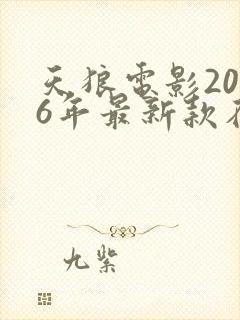 天狼電影20
6年最新款
九紫